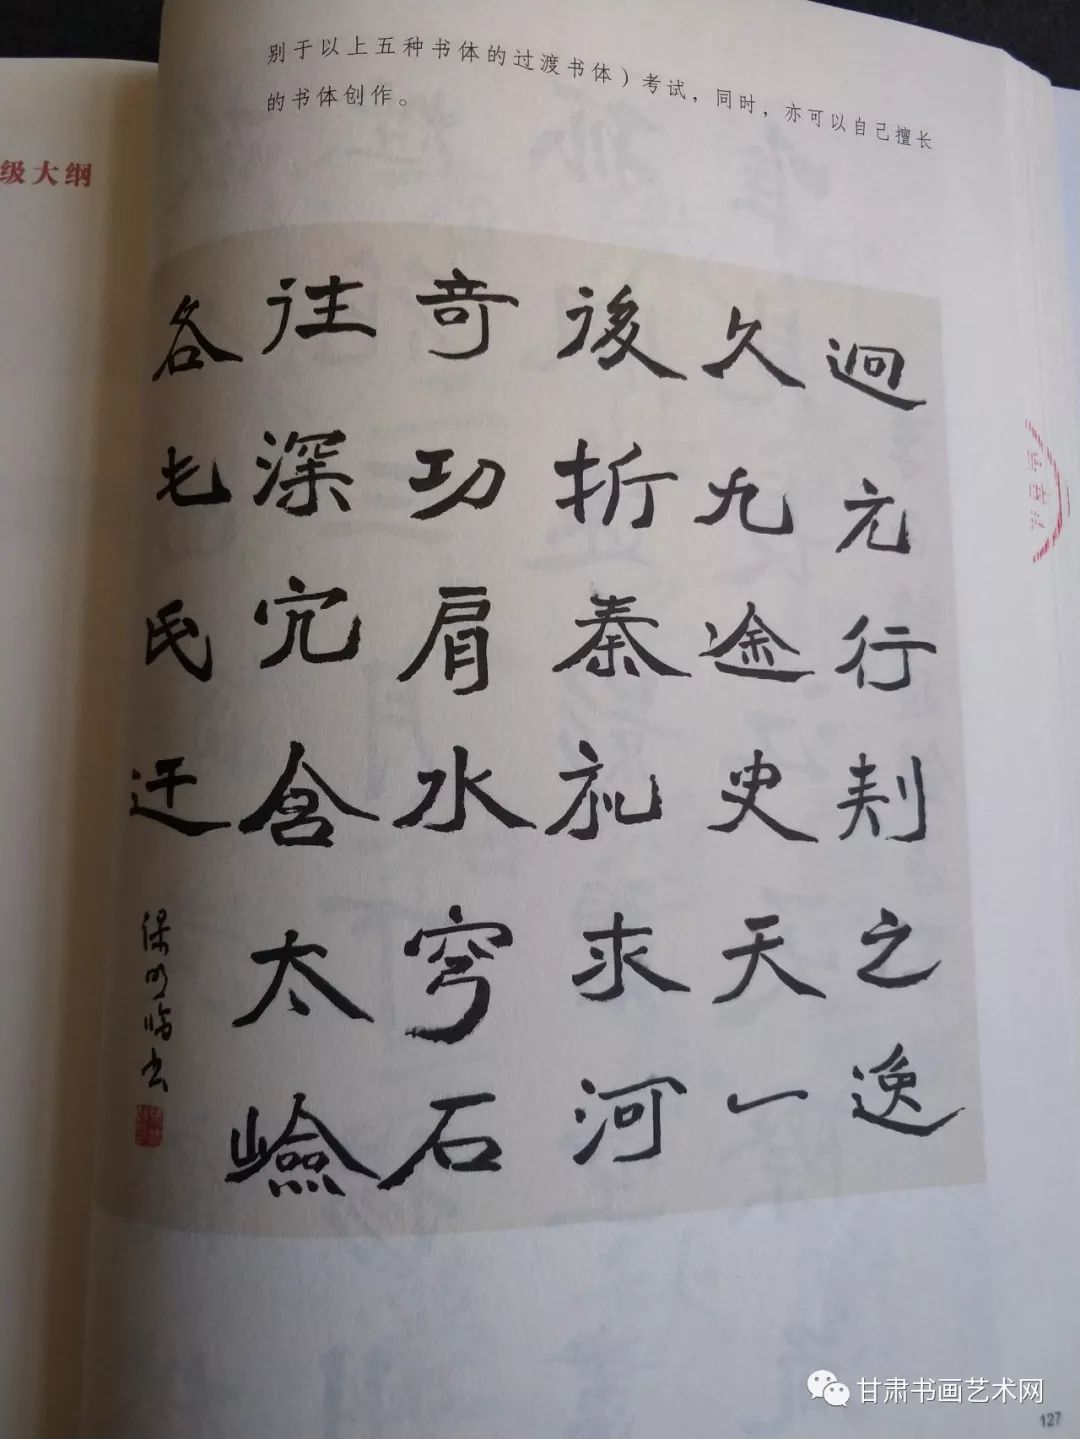 别于以上五种书体的过渡书体）考试，同时，亦可以自己擅长
的书体创作。
级大纲
迥元行刾之逸
久九途史天一
後折秦礼求河
奇功肩水穹石
往深宂含太嶮
各乇民迂
临书
甘肃书画艺术网
127